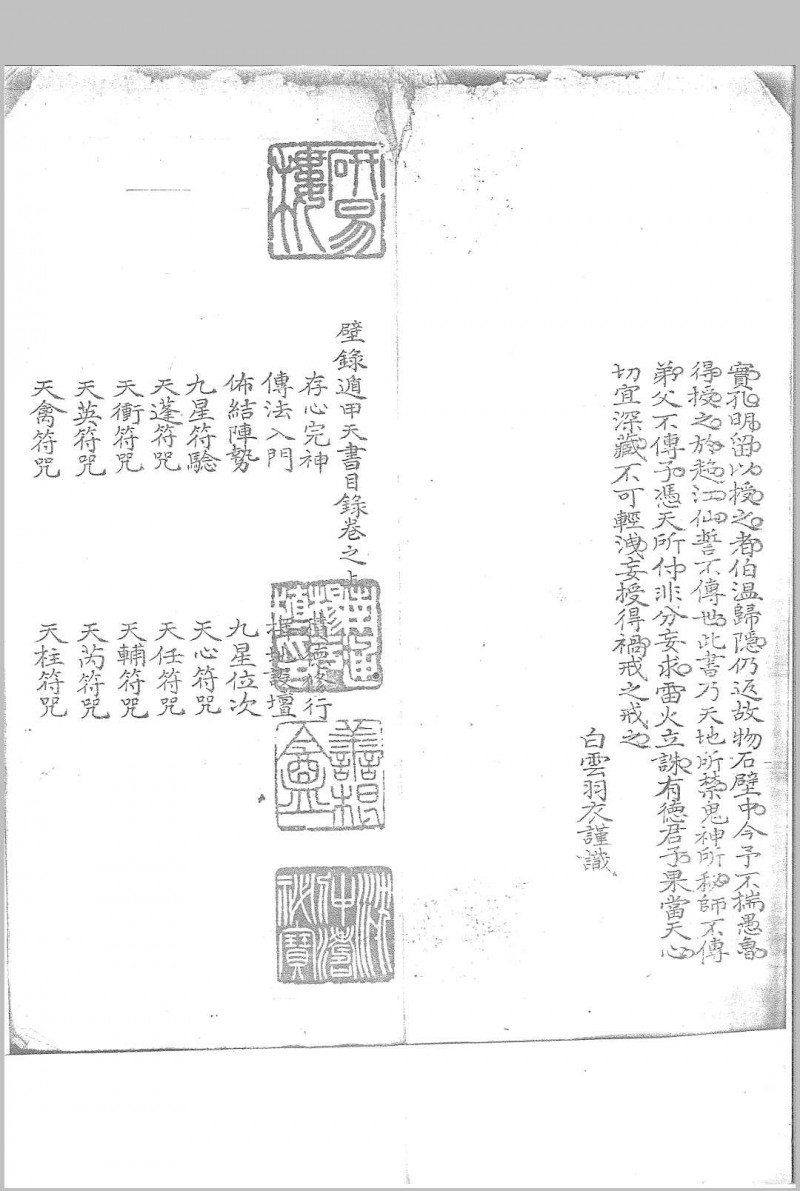 實孔明留以授之者伯溫歸隱仍返故物石壁中今予不揣愚魯
得授之於趙江仙誓不傳世此書乃天地所禁鬼神所秘師不傳
弟父不傳子憑天所付非分妄求雷火立誅有德君子果當天心
切宜深藏不可輕洩妄授得禍戒之戒之
白雲羽衣謹識
研易樓
壁錄遁甲天書目錄卷之上
存心完神
積德修行
傳法入門
擇地設壇
佈結陣勢
九星位次
九星符驗
天心符咒
天蓬符咒
天任符咒
天衝符咒
天輔符咒
天英符咒
天芮符咒
天禽符咒
天柱符咒
沈仲濤祕寶